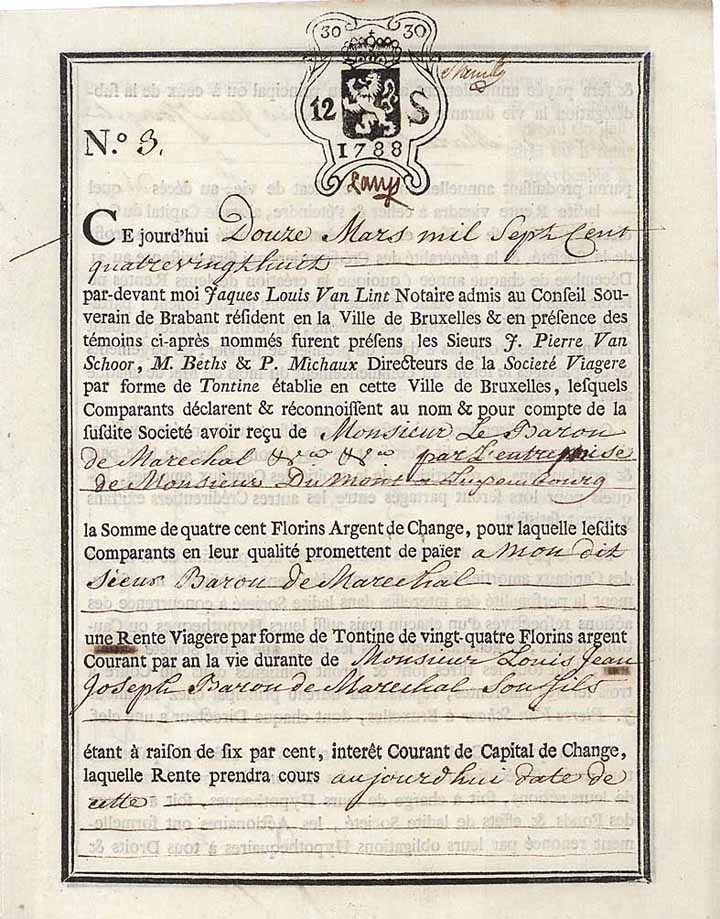 30 30
12 S
1788
N.º 3.
CE jourd'hui Douze Mars mil Sept Cent
quatrevingthuit
par-devant moi Jaques Louis Van Lint Notaire admis au Conſeil Sou-
verain de Brabant réſident en la Ville de Bruxelles & en préſence des
témoins ci-après nommés furent préſens les Sieurs J. Pierre Van
Schoor, M. Beths & P. Michaux Directeurs de la Societé Viagere
par forme de Tontine établie en cette Ville de Bruxelles, leſquels
Comparants déclarent & réconnoiſſent au nom & pour compte de la
ſuſdite Societé avoir reçu de Monsieur Le Baron
de Marechal &ra &ra par L'entremise
de Monsieur Du Mont a Luxembourg
la Somme de quatre cent Florins Argent de Change, pour laquelle leſdits
Comparants en leur qualité promettent de païer a mon dit
Sieur Baron de Marechal
une Rente Viagere par forme de Tontine de vingt-quatre Florins argent
Courant par an la vie durante de Monsieur Louis Jean
Joseph Baron de Marechal Son fils
étant à raiſon de ſix par cent, interêt Courant de Capital de Change,
laquelle Rente prendra cours aujourd'hui date de
cette